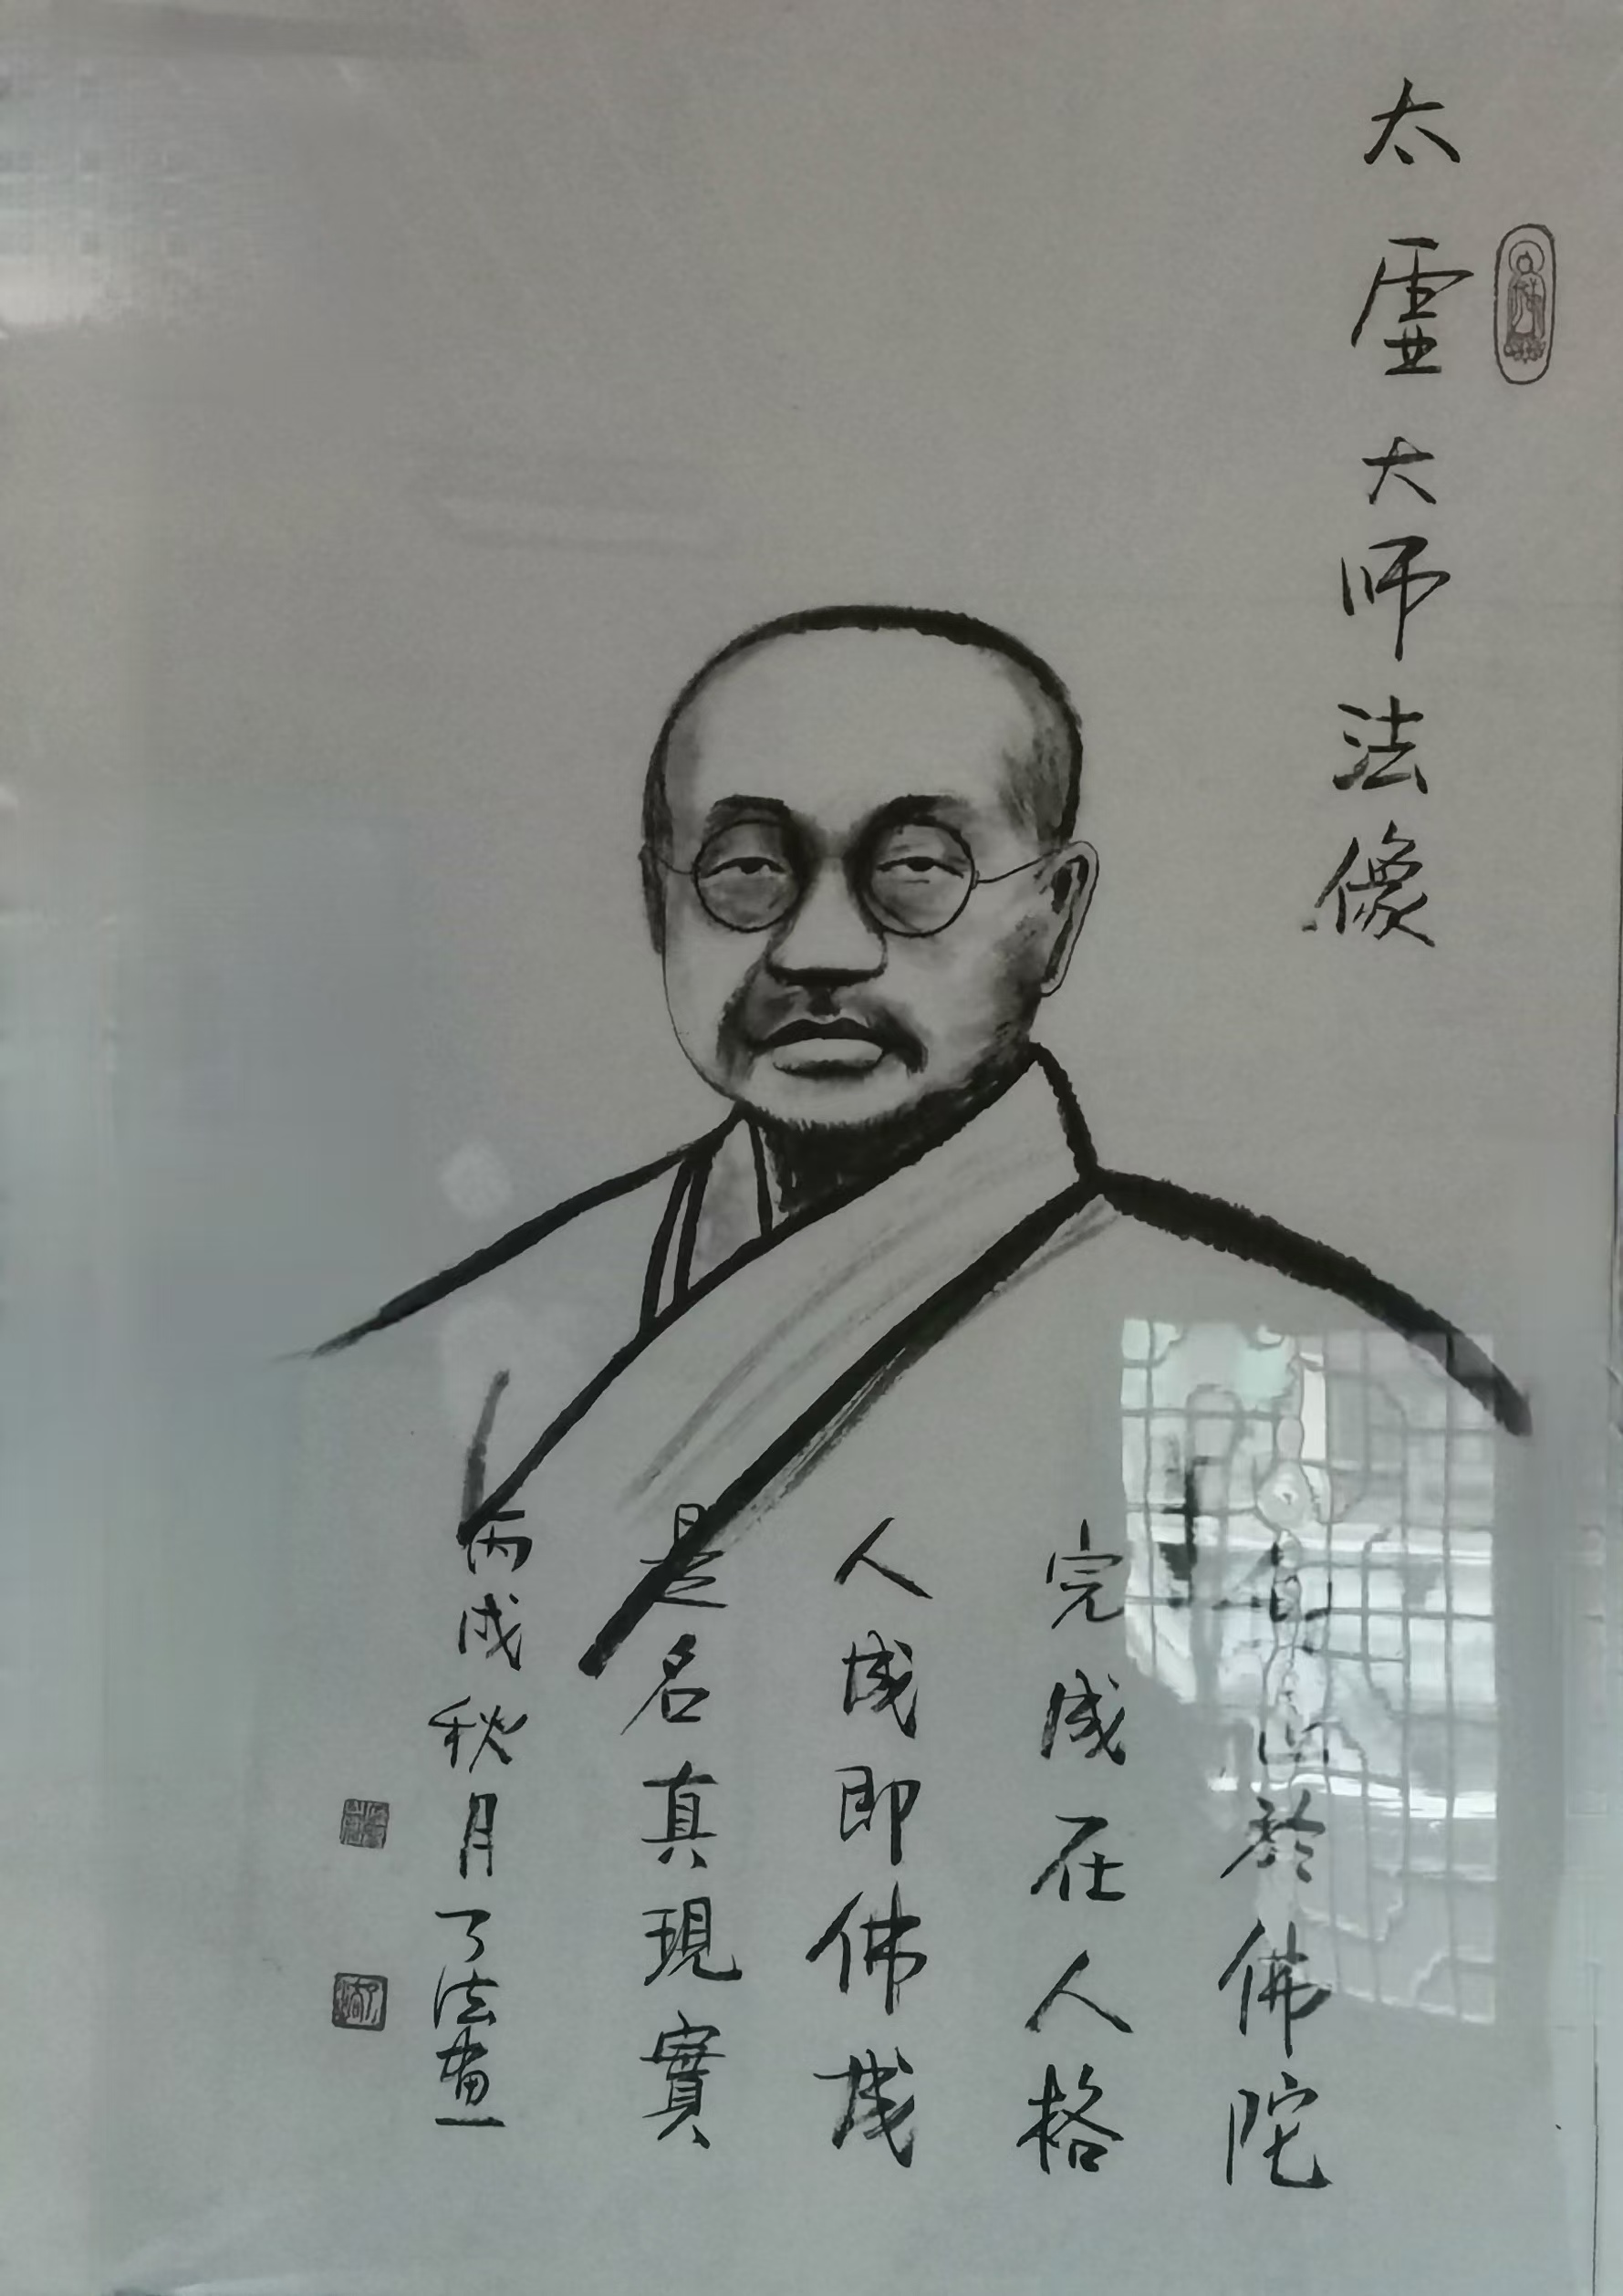 太虚大师法像
於佛陀
完成在人格
人成即佛成
是名真現實
丙戌秋月了法畫